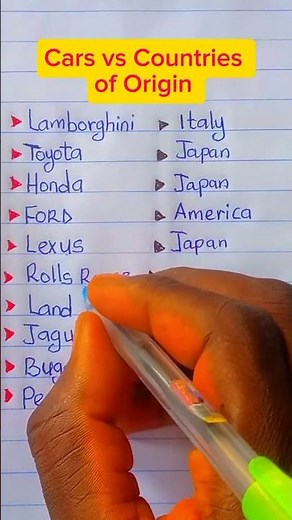 Cars vs Countries
of Origin
Lamborghini Italy
Toyota Japan
Honda Japan
FORD America
Lexus Japan
Rolls
Land